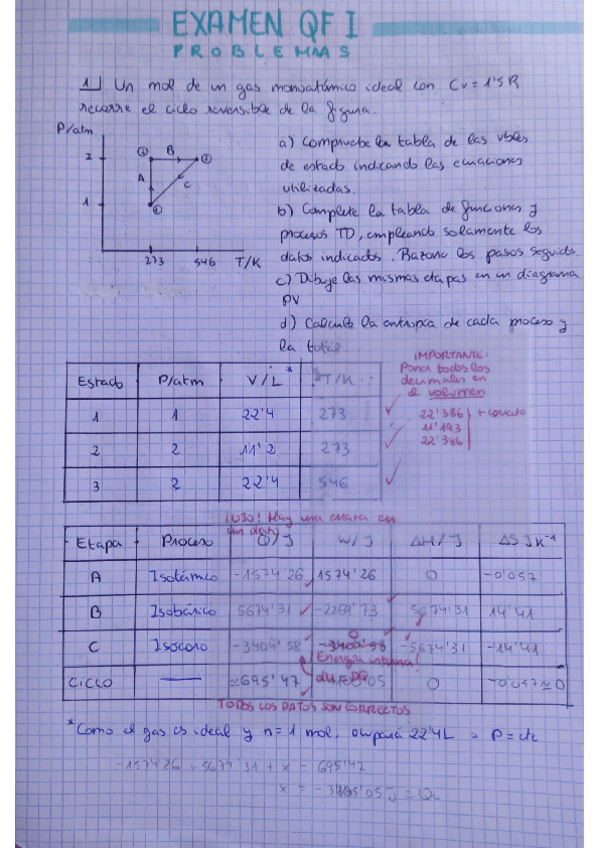 EXAMEN QF I
PROBLEMAS
1 Un mol de un gas monoatómico ideal con Cv = 1'5 R
recorre el ciclo reversible de la figura.
P/atm
2
1
② B ③
A C
①
273 546 T/K
a) Compruebe la tabla de las vbles
de estado indicando las ecuaciones
utilizadas.
b) Complete la tabla de funciones y
procesos TD, empleando solamente los
datos indicados. Razone los pasos seguidos.
c) Dibuje las mismas etapas en un diagrama
PV
d) Calcule la entropía de cada proceso y
la total.
IMPORTANTE:
Poner todos los
decimales en
el volumen
22'386 + correcto
11'193
22'386
Estado P/atm V/L* T/K
1 1 22'4 273
2 2 11'2 273
3 2 22'4 546
¡OJO! Hay una errata en
un dato
Etapa Proceso Q/J W/J ΔH/J ΔS JK⁻¹
A Isotérmico -1574'26 1574'26 0
B Isobárico 5674'31 -2269'73 5674'31 14'41
C Isocoro -3404'58 0 -3404'58 -5674'31 -14'41
Energía interna!
CICLO — 695'47 0
TODOS LOS DATOS SON CORRECTOS
*Como el gas es ideal y n = 1 mol, ocupará 22'4L a P = cte
-1574'26 + 5674'31 + x = 695'47